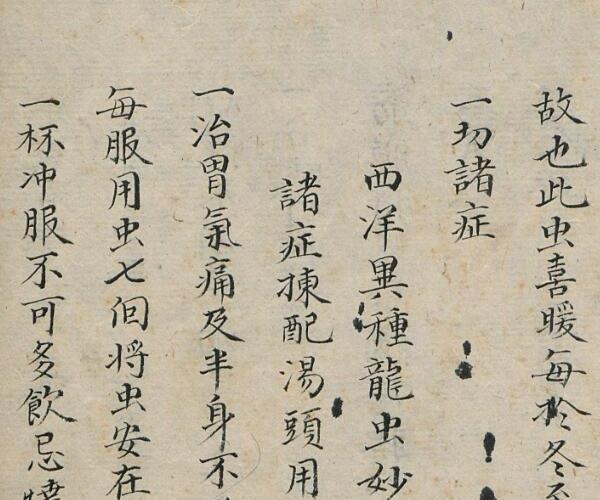 故也此虫喜暖每於冬至
一切諸症
西洋異種龍虫妙
諸症揀配湯頭用
一治胃氣痛及半身不
每服用虫七個将虫安在
一杯冲服不可多飲忌燒